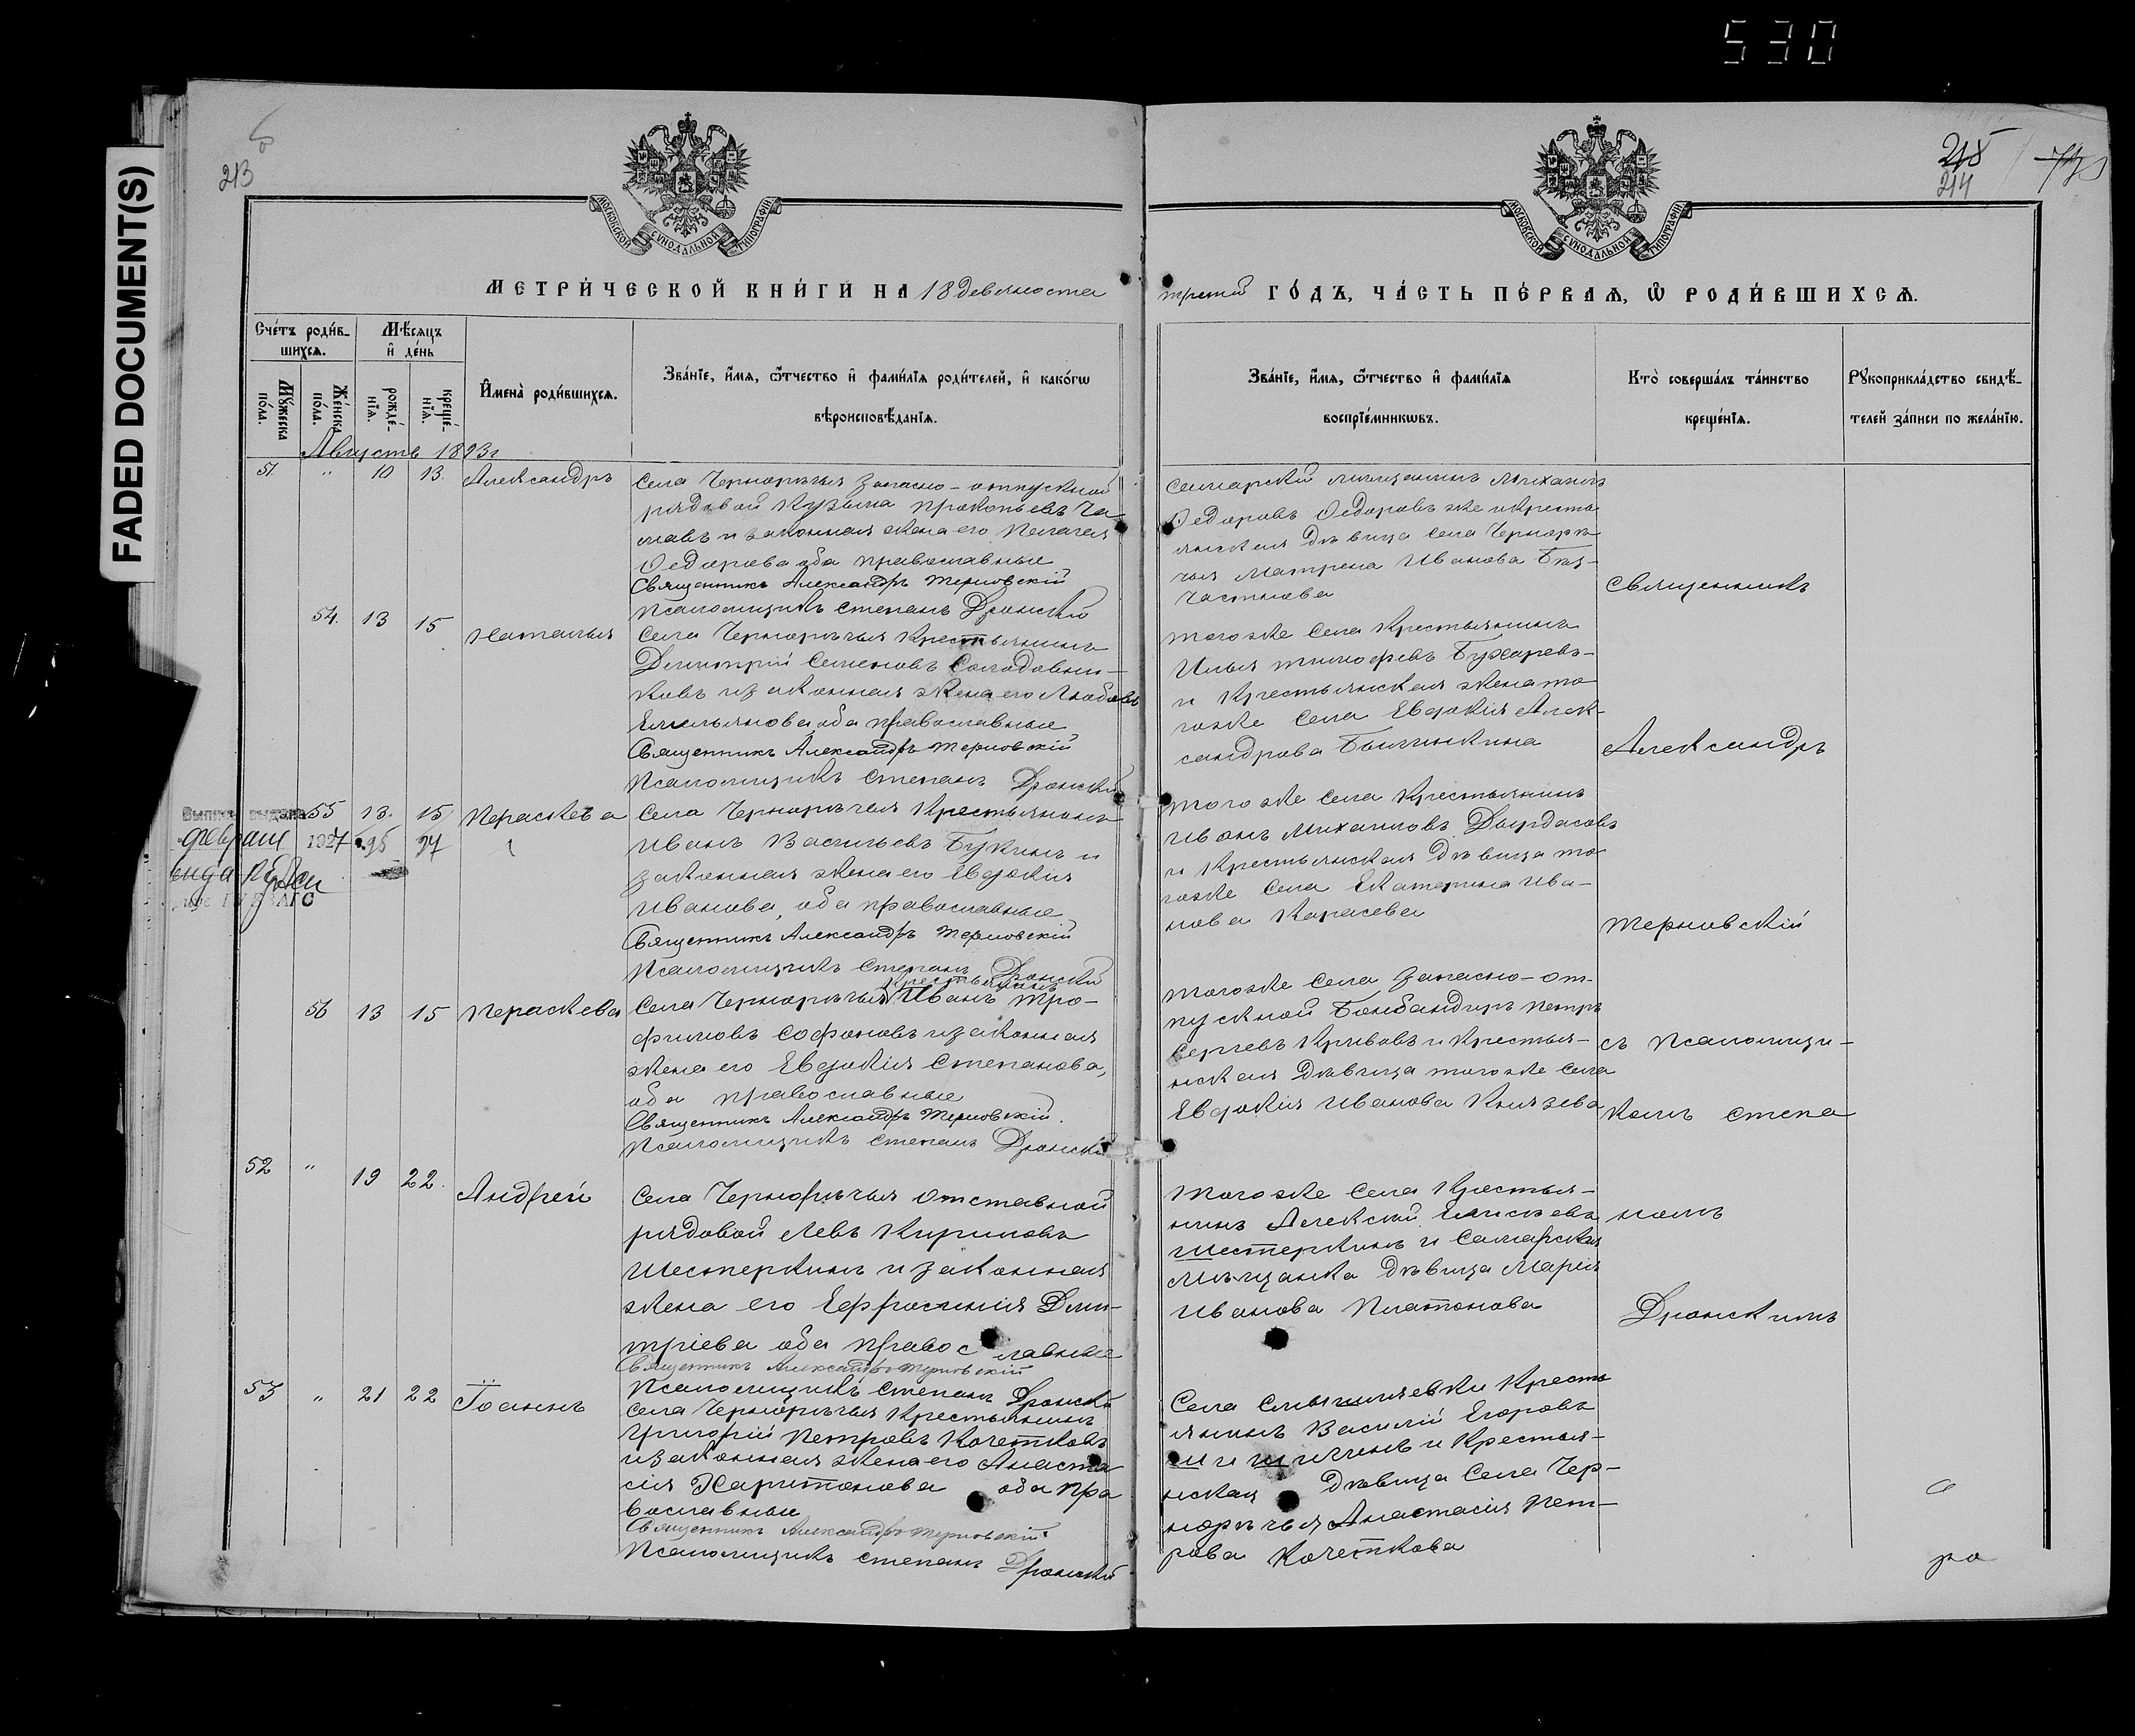 530
FADED DOCUMENT(S)
213
215
214
МОСКОВСКОЙ СѴНОДАЛЬНОЙ ТИПОГРАФІИ
МОСКОВСКОЙ СѴНОДАЛЬНОЙ ТИПОГРАФІИ
МЕТРИ́ЧЕСКОЙ КНИ́ГИ НА 18 девяносто
третій ГО́ДЪ, ЧА́СТЬ ПЕ́РВАѦ, Ѽ РОДИ́ВШИХСѦ.
Сче́тъ роди́в-
шихсѧ.
Мѣ́сѧцъ
и҆ де́нь
Мꙋ́жеска
по́ла.
Же́нска
по́ла.
рожде́-
нїѧ.
креще́-
нїѧ.
И҆мена̀ роди́вшихсѧ.
Зва́нїе, и҆́мѧ, ѻ҆́тчество и҆ фами́лїѧ роди́телей, и҆ како́гѡ
вѣроисповѣ́данїѧ.
Зва́нїе, и҆́мѧ, ѻ҆́тчество и҆ фами́лїѧ
воспрїе́мникѡвъ.
Кто̀ соверша́лъ та́инство
креще́нїѧ.
Рꙋкоприкла́дство свидѣ́-
телей за́писи по жела́нїю.
Августъ 1893 г
51. " 10 13. Александръ
Села Чернорѣчья запасно-отпускной
рядовой Кузьма Прокопьевъ Ча
и законная жена его Пелагея
Ѳедорова оба православные
Священникъ Александръ Терновскій
Псаломщикъ Степанъ Дронскій
Самарскій мѣщанинъ Михаилъ
Ѳедоровъ Ѳедоровъ же и кресть
янская дѣвица села Чернорѣ
чья Матрена Иванова Без-
частнова
Священникъ
54. 13 15 Наталья
Села Чернорѣчья крестьянинъ
Димитрій Семеновъ Солодовни-
ковъ и законная жена его Любовь
Емельянова оба православные
Священникъ Александръ Терновскій
Псаломщикъ Степанъ Дронскій
Того же села крестьянинъ
Илья Тимофеевъ Бухаревъ
и крестьянская жена то
гоже села Евдокія Алек-
сандрова
Александръ
Выпись выдана
февраля 1927
55 13. 15 Пераскева
95 97
Села Чернорѣчья крестьянинъ
Иванъ Васильевъ Букинъ и
законная жена его Евдокія
Иванова, оба православные
Священникъ Александръ Терновскій
Псаломщикъ Степанъ Дронскій
Того же села крестьянинъ
Иванъ Михаиловъ Дырдасовъ
и крестьянская дѣвица то
гоже села Екатерина Ива-
нова Карасева
Терновскій
56 13 15 Пераскева
крестьянинъ
Села Чернорѣчья Иванъ Тро-
фимовъ Софоновъ и законная
жена его Евдокія Степанова,
оба православные
Священникъ Александръ Терновскій.
Псаломщикъ Степанъ Дронскій
Того же села запасно-от-
пускной Бонбандиръ Петръ
Сергѣевъ Кривовъ и крестья-
нская дѣвица того же села
Евдокія Иванова Князева
съ псаломщи-
комъ Степа
52 " 19 22. Андрей
Села Чернорѣчья отставной
рядовой Левъ Кириловъ
Шестеркинъ и законная
жена его Ефросинія Дми-
тріева оба православные
Священникъ Александръ Терновскій
Псаломщикъ Степанъ Дронскій
Того же села крестья-
нинъ Алексѣй Елисѣевъ
Шестеркинъ и Самарская
мѣщанка дѣвица Марія
Иванова Платонова
номъ
Дронскимъ
53 " 21 22 Іоаннъ
Села Чернорѣчья крестьянинъ
Григорій Петровъ Кочетковъ
и законная жена его Анаста
сія Харитонова оба пра
вославные
Священникъ Александръ Терновскій
Псаломщикъ Степанъ Дронскій
Села Смышляевки кресть
янинъ Василій Егоровъ
Шишкинъ и крестья-
нская дѣвица села Чер-
норѣчья Анастасія Пет-
рова Кочеткова